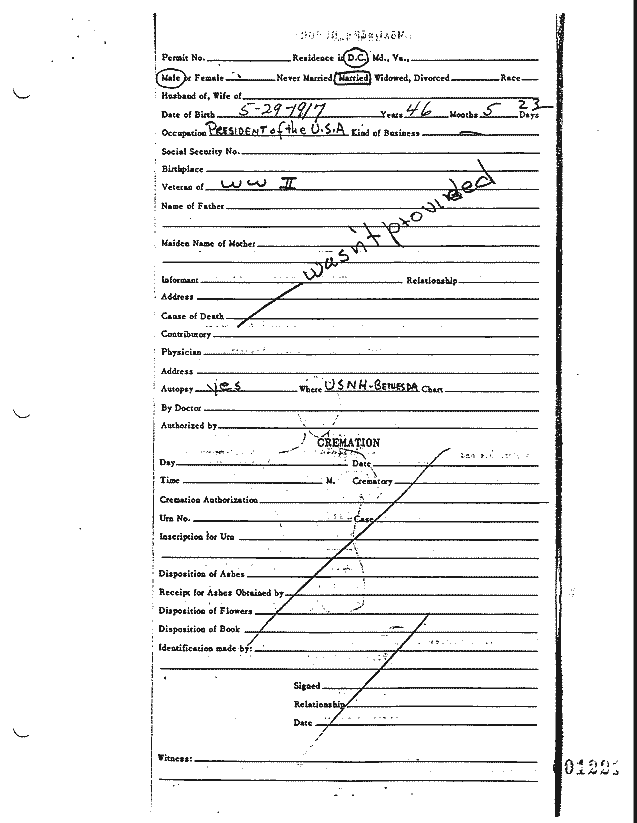 Permit No. Residence in D.C. Md., Va.,
Male or Female Never Married, Married, Widowed, Divorced Race
Husband of, Wife of
Date of Birth 5-29-1917 Years 46 Months 5 Days 23
Occupation PRESIDENT of the U.S.A Kind of Business —
Social Security No.
Birthplace
Veteran of WW II
Name of Father
wasn't provided
Maiden Name of Mother
Informant Relationship
Address
Cause of Death
Contributory
Physician
Address
Autopsy yes Where USNH-BETHESDA Chart
By Doctor
Authorized by
CREMATION
Day Date
Time M. Crematory
Cremation Authorization
Urn No. Case
Inscription for Urn
Disposition of Ashes
Receipt for Ashes Obtained by
Disposition of Flowers
Disposition of Book
Identification made by:
Signed
Relationship
Date
Witness: